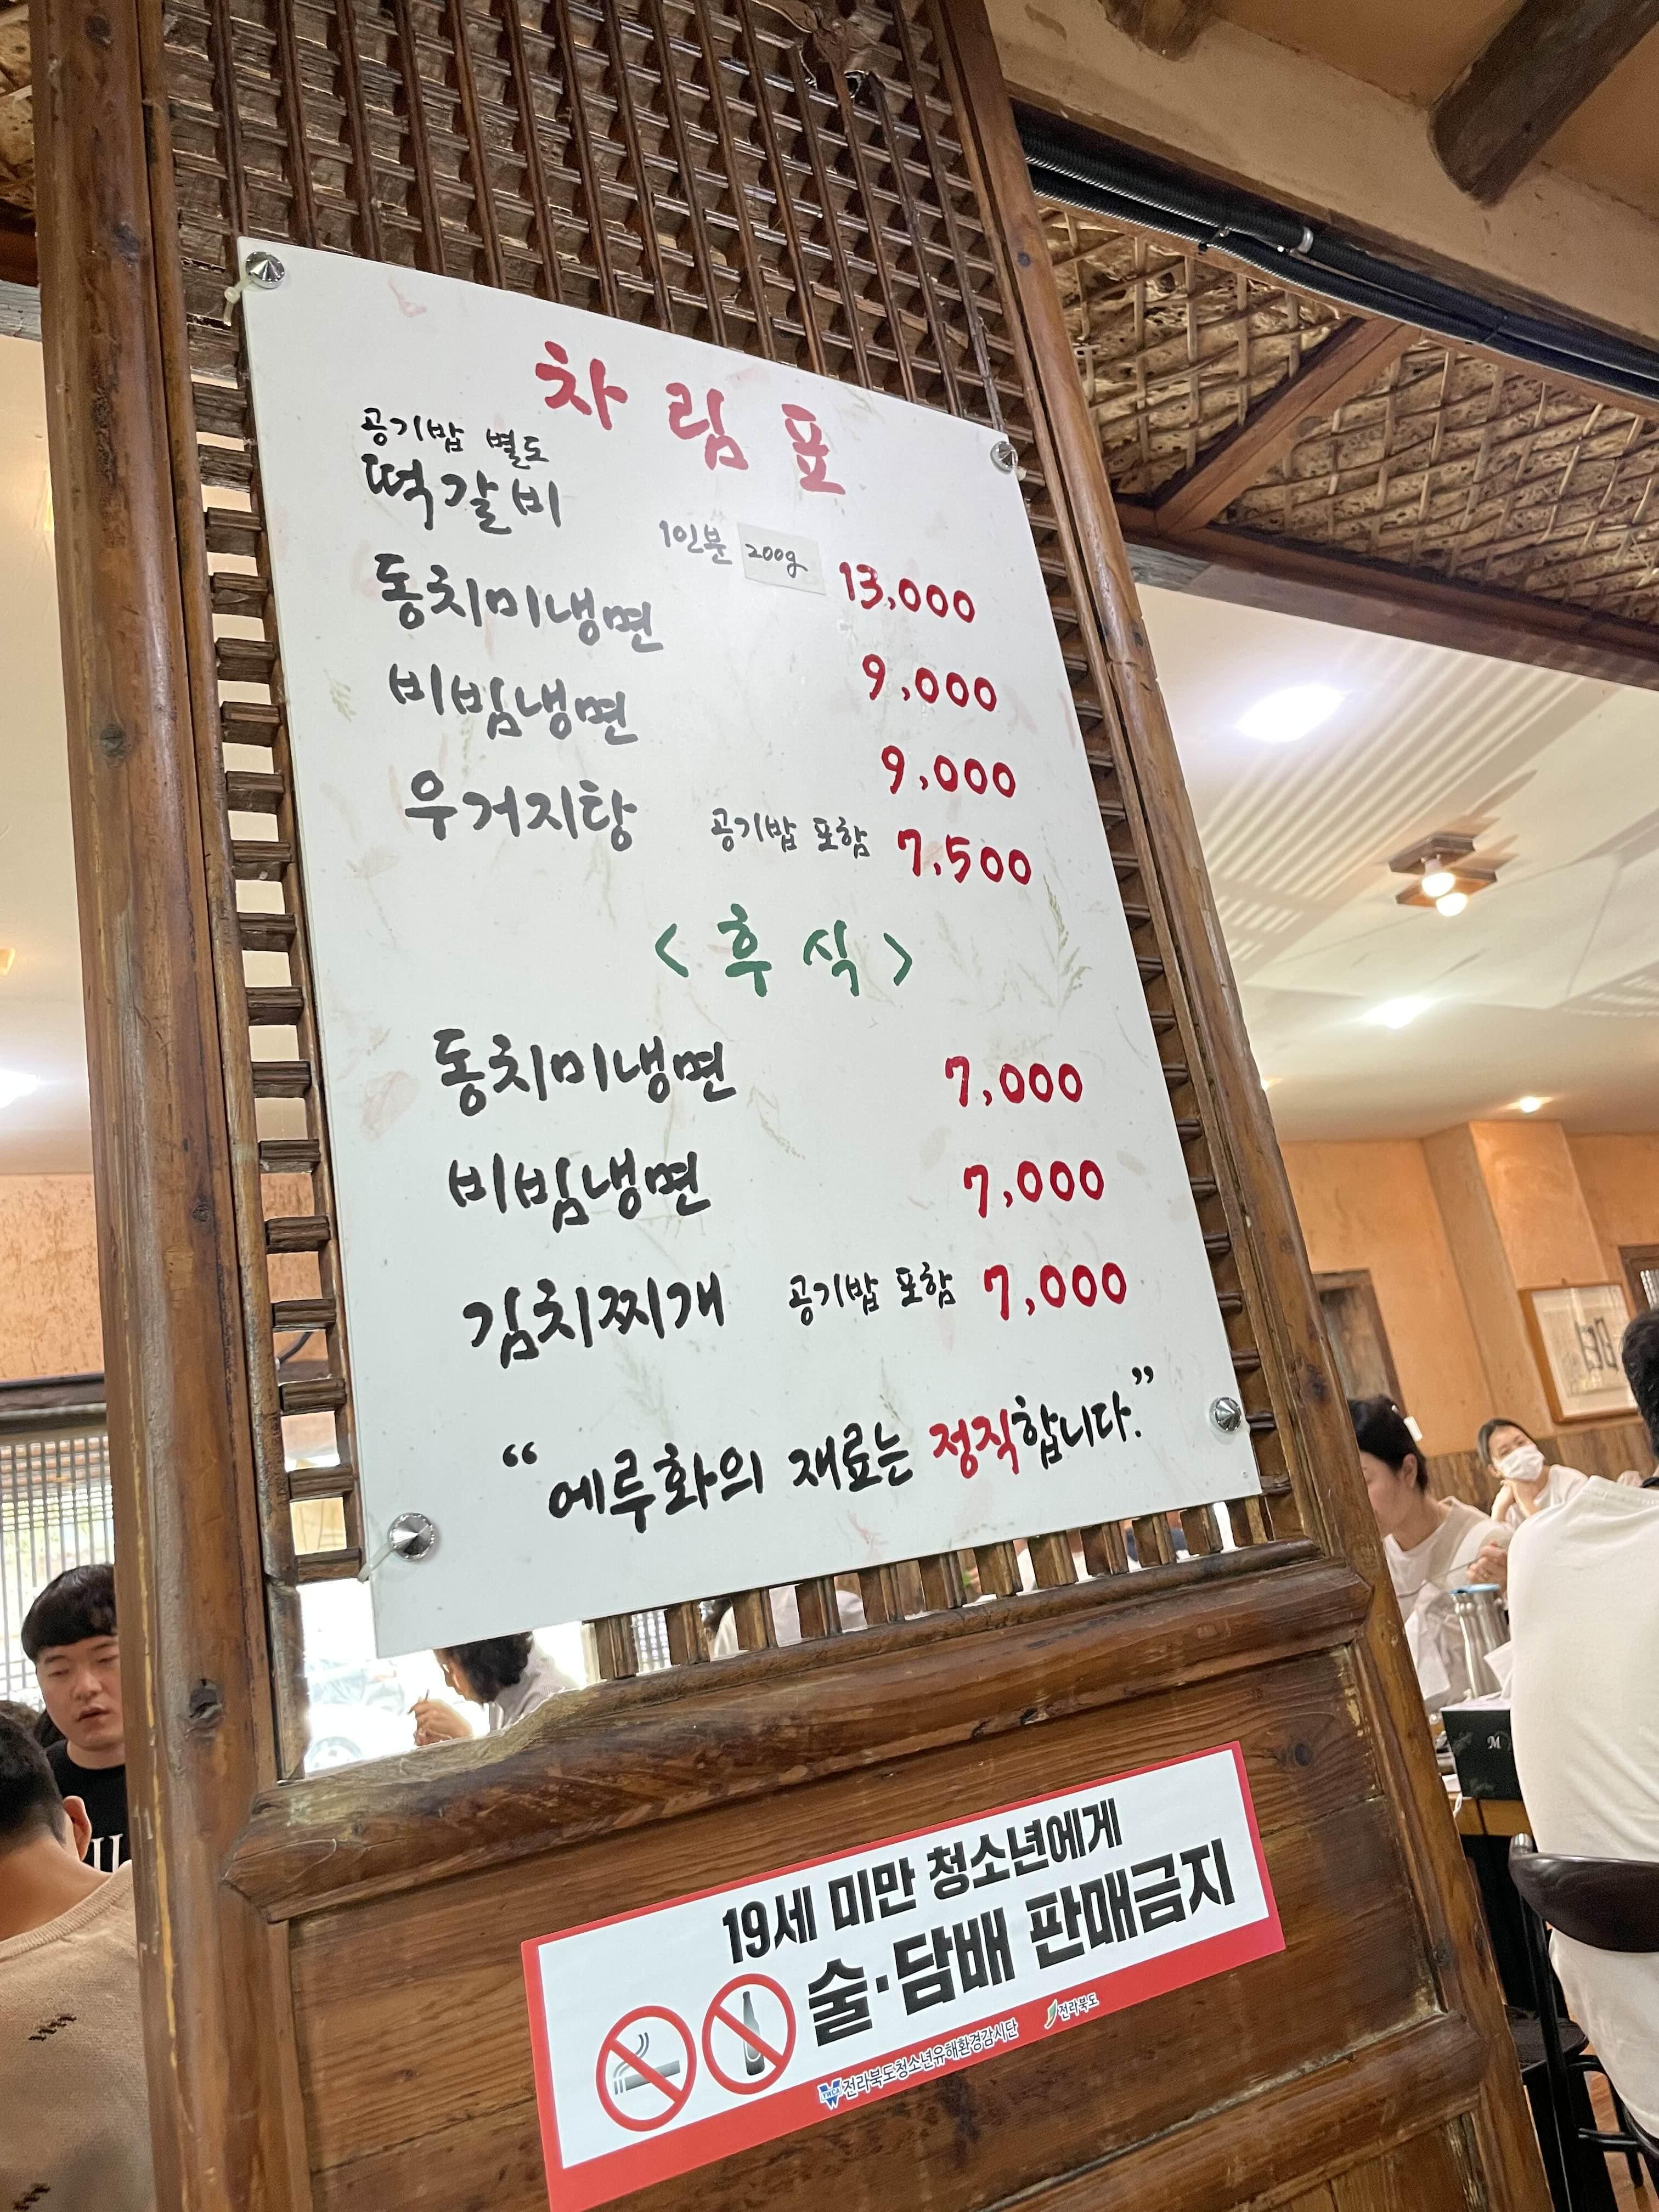 차림표
공기밥 별도
떡갈비 1인분 200g 13,000
동치미냉면 9,000
비빔냉면 9,000
우거지탕 공기밥 포함 7,500
<후식>
동치미냉면 7,000
비빔냉면 7,000
김치찌개 공기밥 포함 7,000
“에루화의 재료는 정직합니다.”
19세 미만 청소년에게
술·담배 판매금지
YWCA 전라북도청소년유해환경감시단 전라북도
M